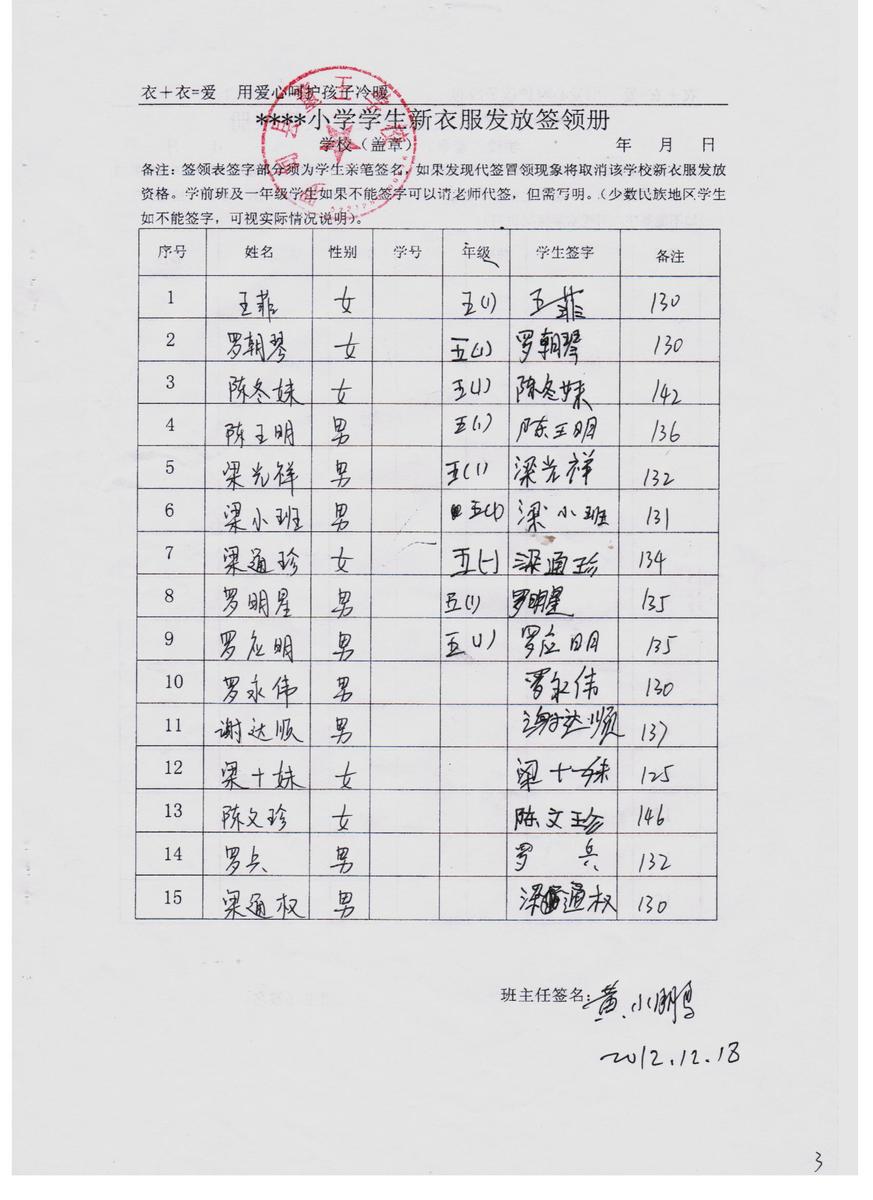 衣＋衣=爱 用爱心呵护孩子冷暖
****小学学生新衣服发放签领册
学校（盖章） 年 月 日
备注：签领表签字部分须为学生亲笔签名，如果发现代签冒领现象将取消该学校新衣服发放
资格。学前班及一年级学生如果不能签字可以请老师代签，但需写明。（少数民族地区学生
如不能签字，可视实际情况说明）。
序号 姓名 性别 学号 年级 学生签字 备注
1 王菲 女 五(1) 王菲 130
2 罗朝琴 女 五(1) 罗朝琴 130
3 陈冬妹 女 五(1) 陈冬妹 142
4 陈王明 男 五(1) 陈王明 136
5 梁光祥 男 五(1) 梁光祥 132
6 梁小班 男 五(1) 梁小班 131
7 梁通珍 女 五(一) 梁通珍 134
8 罗明星 男 五(1) 罗明星 135
9 罗应明 男 五(1) 罗应明 135
10 罗永伟 男 罗永伟 130
11 谢达顺 男 谢达顺 137
12 梁十妹 女 梁十妹 125
13 陈文珍 女 陈文珍 146
14 罗兵 男 罗兵 132
15 梁通权 男 梁通权 130
班主任签名：黄小鹏
2012.12.18
3